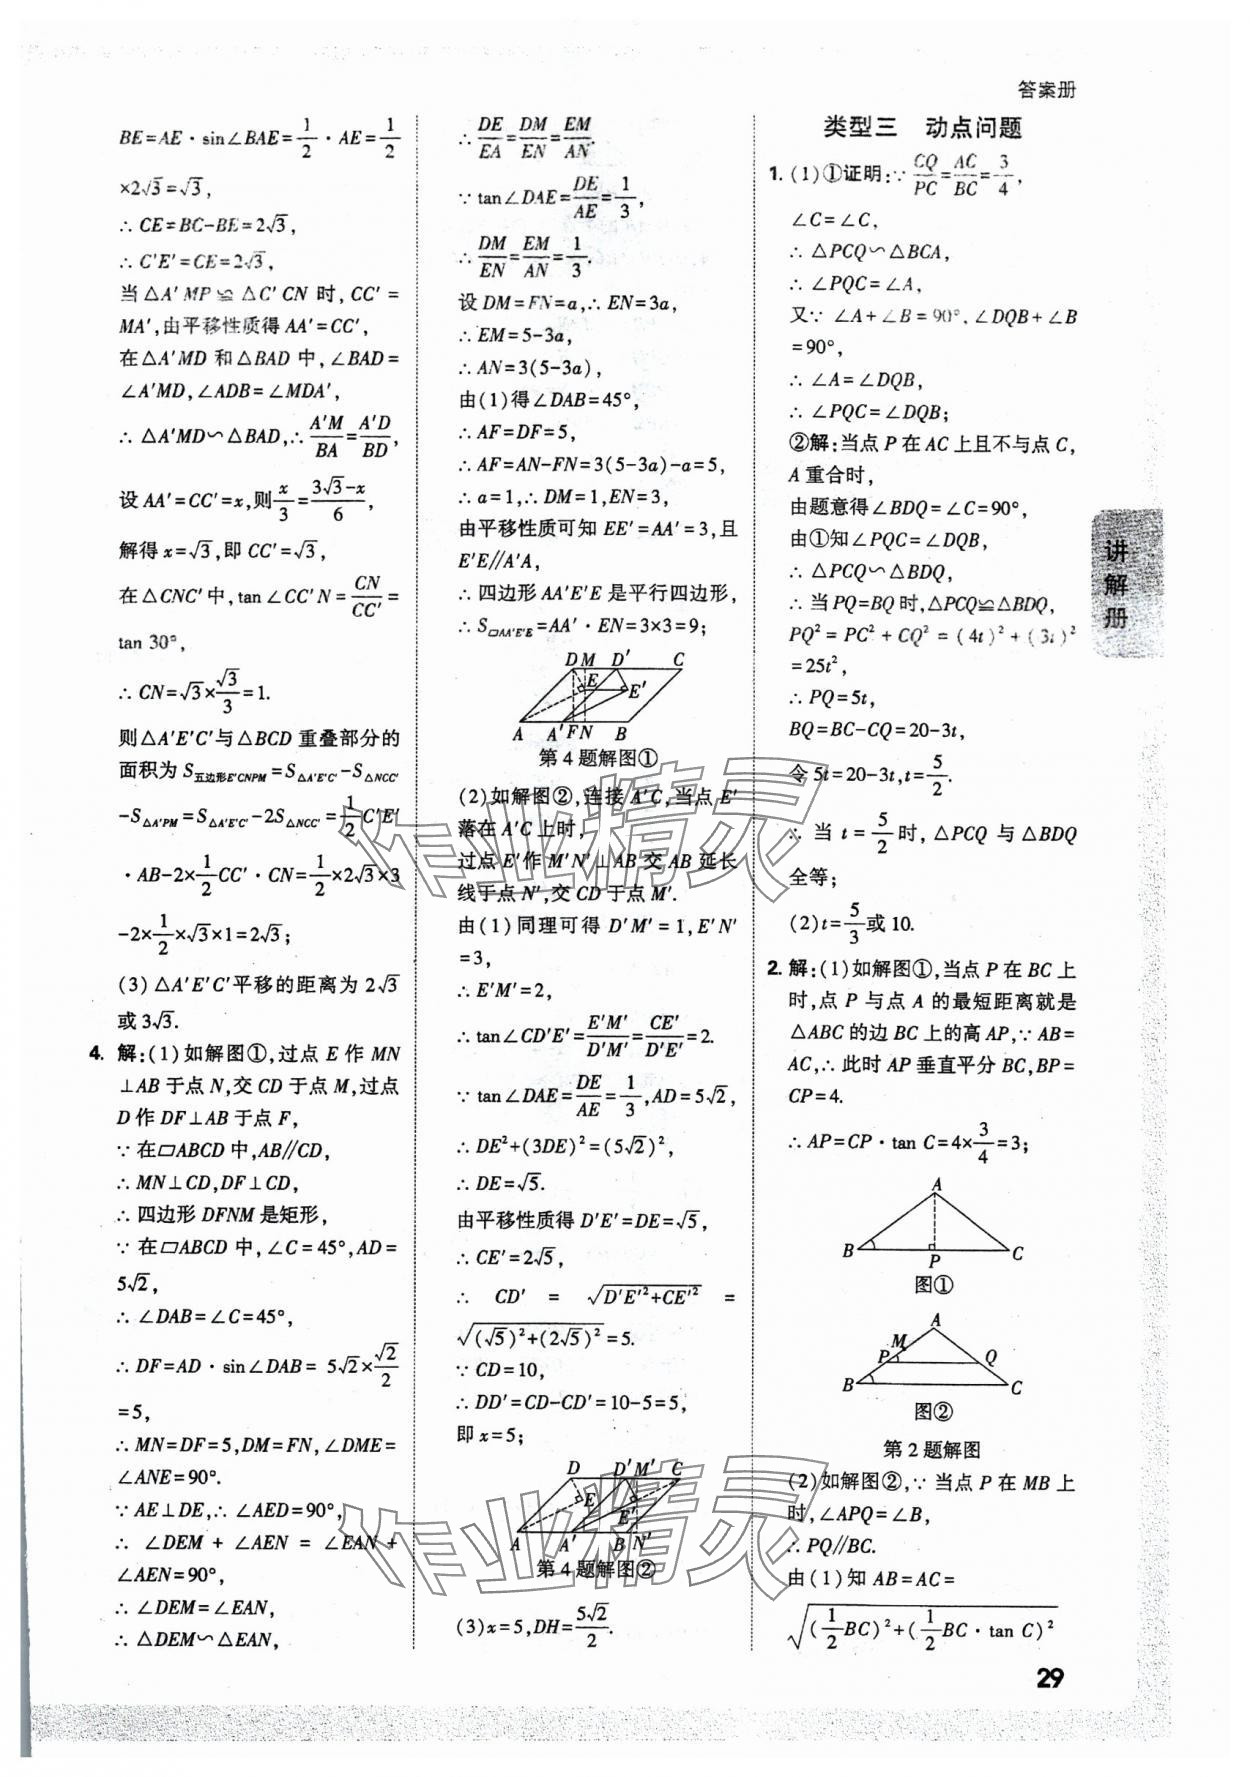 答案册
BE=AE·sin∠BAE=1/2·AE=1/2
×2√3=√3,
∴CE=BC-BE=2√3,
∴C'E'=CE=2√3,
当△A'MP≌△C'CN时,CC'=
MA',由平移性质得AA'=CC',
在△A'MD和△BAD中,∠BAD=
∠A'MD,∠ADB=∠MDA',
∴△A'MD∽△BAD,∴A'M/BA=A'D/BD,
设AA'=CC'=x,则x/3=(3√3-x)/6,
解得x=√3,即CC'=√3,
在△CNC'中,tan∠CC'N=CN/CC'=
tan 30°,
∴CN=√3×√3/3=1.
则△A'E'C'与△BCD重叠部分的
面积为S五边形E'CNPM=S△A'E'C'-S△NCC'
-S△A'PM=S△A'E'C'-2S△NCC'=1/2C'E'
·AB-2×1/2CC'·CN=1/2×2√3×3
-2×1/2×√3×1=2√3;
(3)△A'E'C'平移的距离为2√3
或3√3.
4.解:(1)如解图①,过点E作MN
⊥AB于点N,交CD于点M,过点
D作DF⊥AB于点F,
∵在▱ABCD中,AB∥CD,
∴MN⊥CD,DF⊥CD,
∴四边形DFNM是矩形,
∵在▱ABCD中,∠C=45°,AD=
5√2,
∴∠DAB=∠C=45°,
∴DF=AD·sin∠DAB=5√2×√2/2
=5,
∴MN=DF=5,DM=FN,∠DME=
∠ANE=90°.
∵AE⊥DE,∴∠AED=90°,
∴∠DEM+∠AEN=∠EAN+
∠AEN=90°,
∴∠DEM=∠EAN,
∴△DEM∽△EAN,
∴DE/EA=DM/EN=EM/AN.
∵tan∠DAE=DE/AE=1/3,
∴DM/EN=EM/AN=1/3.
设DM=FN=a,∴EN=3a,
∴EM=5-3a,
∴AN=3(5-3a),
由(1)得∠DAB=45°,
∴AF=DF=5,
∴AF=AN-FN=3(5-3a)-a=5,
∴a=1,∴DM=1,EN=3,
由平移性质可知EE'=AA'=3,且
E'E∥A'A,
∴四边形AA'E'E是平行四边形,
∴S▱AA'E'E=AA'·EN=3×3=9;
D M D' C
E E'
A A' F N B
第4题解图①
(2)如解图②,连接A'C,当点E'
落在A'C上时,
过点E'作M'N'⊥AB交AB延长
线于点N',交CD于点M'.
由(1)同理可得D'M'=1,E'N'
=3,
∴E'M'=2,
∴tan∠CD'E'=E'M'/D'M'=CE'/D'E'=2.
∵tan∠DAE=DE/AE=1/3,AD=5√2,
∴DE²+(3DE)²=(5√2)²,
∴DE=√5.
由平移性质得D'E'=DE=√5,
∴CE'=2√5,
∴CD'=√(D'E'²+CE'²)=
√((√5)²+(2√5)²)=5.
∵CD=10,
∴DD'=CD-CD'=10-5=5,
即x=5;
D D' M' C
E E'
A A' B N'
第4题解图②
(3)x=5,DH=5√2/2.
类型三 动点问题
1.(1)①证明:∵CQ/PC=AC/BC=3/4,
∠C=∠C,
∴△PCQ∽△BCA,
∴∠PQC=∠A,
又∵∠A+∠B=90°,∠DQB+∠B
=90°,
∴∠A=∠DQB,
∴∠PQC=∠DQB;
②解:当点P在AC上且不与点C,
A重合时,
由题意得∠BDQ=∠C=90°,
由①知∠PQC=∠DQB,
∴△PCQ∽△BDQ,
∴当PQ=BQ时,△PCQ≌△BDQ,
PQ²=PC²+CQ²=(4t)²+(3t)²
=25t²,
∴PQ=5t,
BQ=BC-CQ=20-3t,
令5t=20-3t,t=5/2.
∴当t=5/2时,△PCQ与△BDQ
全等;
(2)t=5/3或10.
2.解:(1)如解图①,当点P在BC上
时,点P与点A的最短距离就是
△ABC的边BC上的高AP,∵AB=
AC,∴此时AP垂直平分BC,BP=
CP=4.
∴AP=CP·tan C=4×3/4=3;
A
B P C
图①
A
M
P Q
B C
图②
第2题解图
(2)如解图②,∵当点P在MB上
时,∠APQ=∠B,
∴PQ∥BC.
由(1)知AB=AC=
√((1/2BC)²+(1/2BC·tan C)²)
讲解册
29
作业精灵
作业精灵